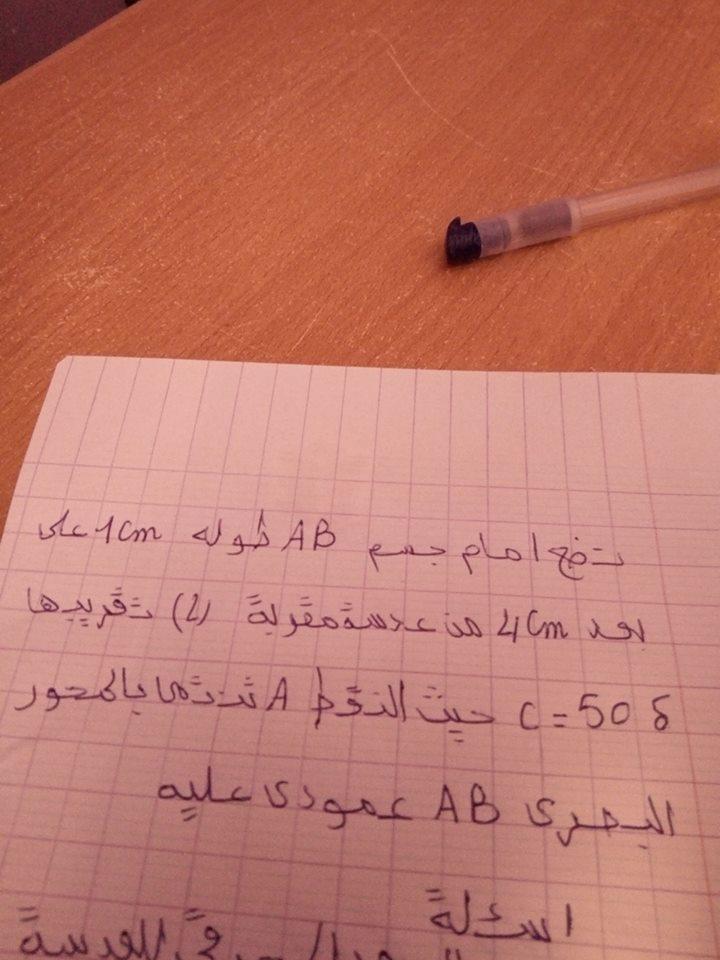 نضع امام جسم AB طوله 1cm على
بعد 4cm من عدسة مقربة (L) تقريبها
C = 50 δ حيث النقط A تنتمي بالمحور
البصري AB عمودي عليه
اسئلة
للعدسة